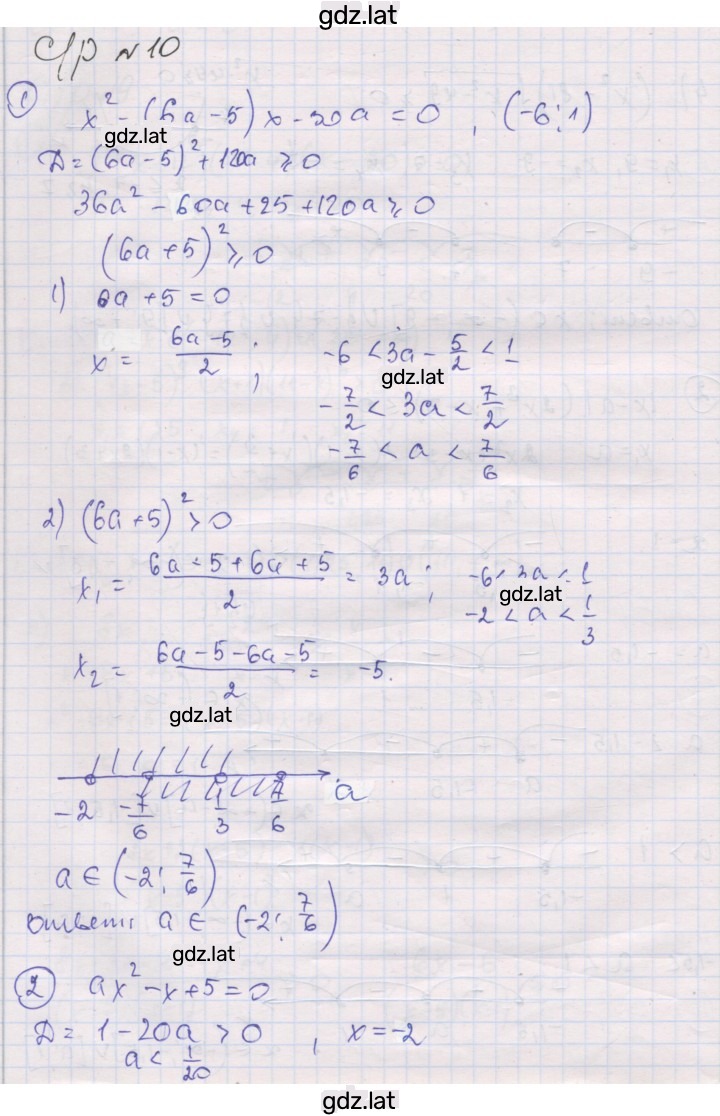 gdz.lat
С/р №10
① x² - (6a-5)x - 30a = 0, (-6; 1)
gdz.lat
D = (6a-5)² + 120a ≥ 0
36a² - 60a + 25 + 120a ≥ 0
(6a+5)² ≥ 0
1) 6a + 5 = 0
x = (6a-5)/2; -6 < 3a - 5/2 < 1
gdz.lat
-7/2 < 3a < 7/2
-7/6 < a < 7/6
2) (6a+5)² > 0
x₁ = (6a-5+6a+5)/2 = 3a; -6 < 3a < 1
gdz.lat
-2 < a < 1/3
x₂ = (6a-5-6a-5)/2 = -5.
gdz.lat
-2 -7/6 1/3 7/6 a
a ∈ (-2; 7/6)
Ответ: a ∈ (-2; 7/6)
gdz.lat
② ax² - x + 5 = 0
D = 1 - 20a > 0, x = -2
a < 1/20
gdz.lat